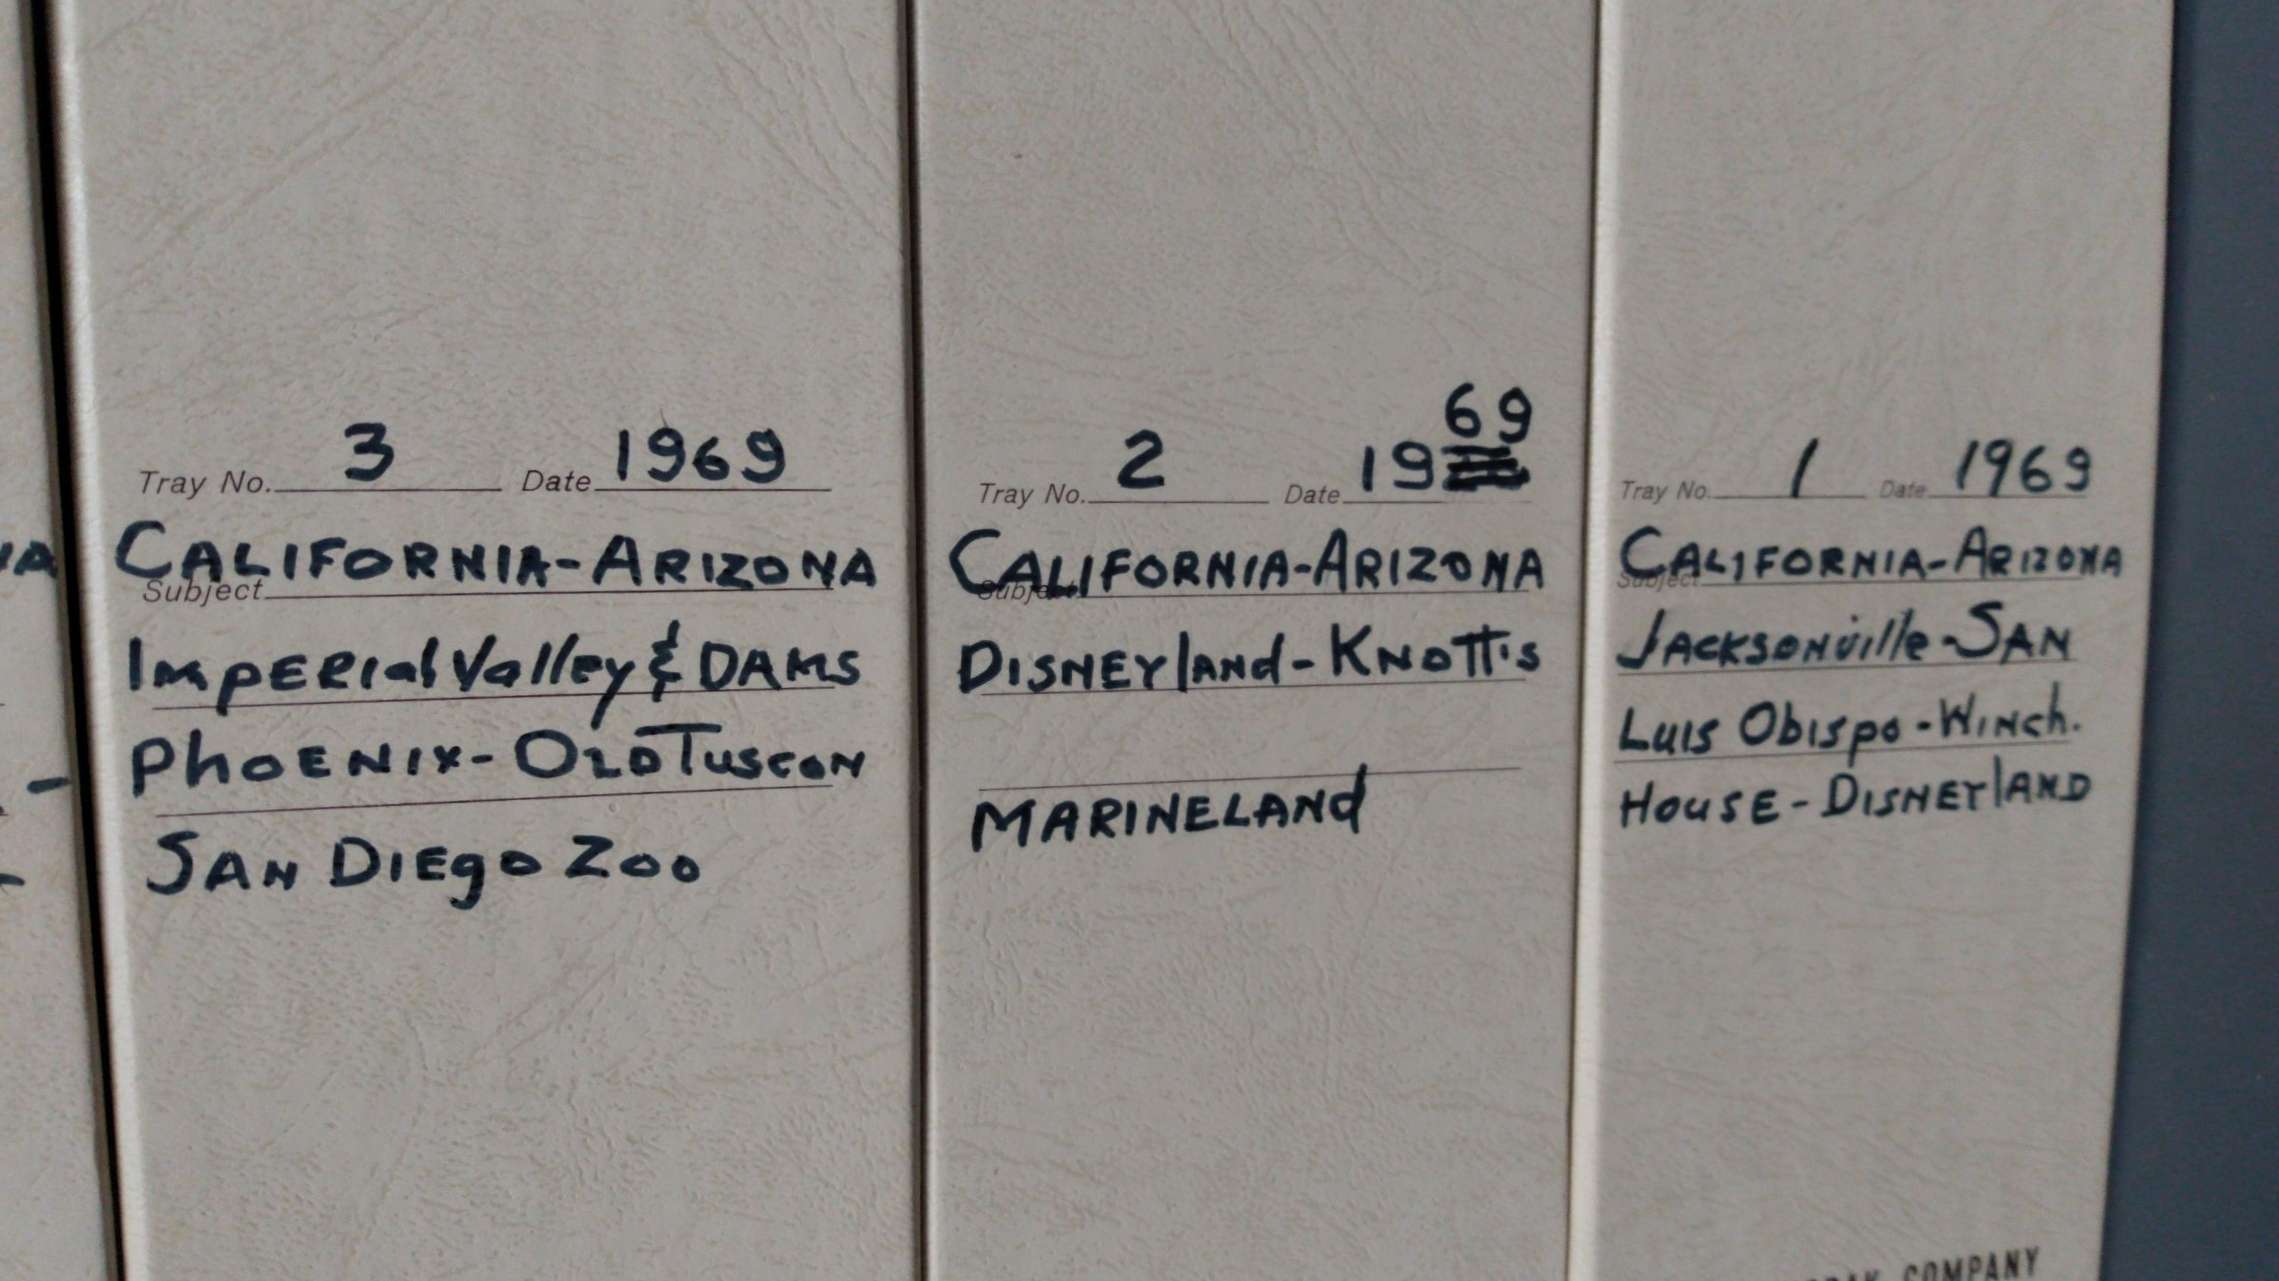 Tray No. 3 Date 1969
CALIFORNIA-ARIZONA
Subject
IMPERIAL Valley & DAMS
PhOENIX-OLD TUSCON
SAN DIEgO ZOO
Tray No. 2 Date 19 69
CALIFORNIA-ARIZONA
Subject
DISNEYlANd-KNOTT'S
MARINELANd
Tray No. 1 Date 1969
CALIFORNIA-ARIZONA
Subject
JACKSONville-SAN
LUIS ObISpo-WINch.
HOUSE-DISNEYlAND
COMPANY